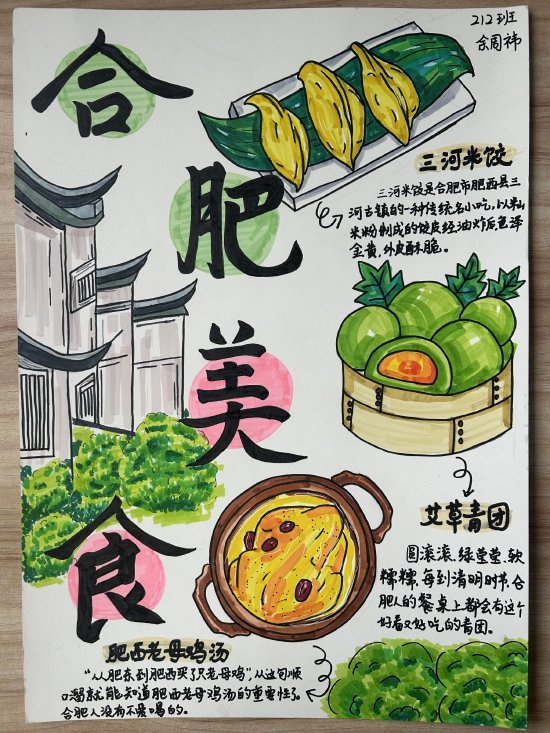 212班
余周祎
合肥美食
三河米饺
三河米饺是合肥市肥西县三
河古镇的一种传统名小吃,以籼
米粉制成的饺皮经油炸后色泽
金黄,外皮酥脆。
艾草青团
圆滚滚、绿莹莹、软
糯糯,每到清明时节,合
肥人的餐桌上都会有这个
好看又好吃的青团。
肥西老母鸡汤
“从肥东到肥西买了只老母鸡”,从这句顺
口溜就能知道肥西老母鸡汤的重要性了。
合肥人没有不爱喝的。